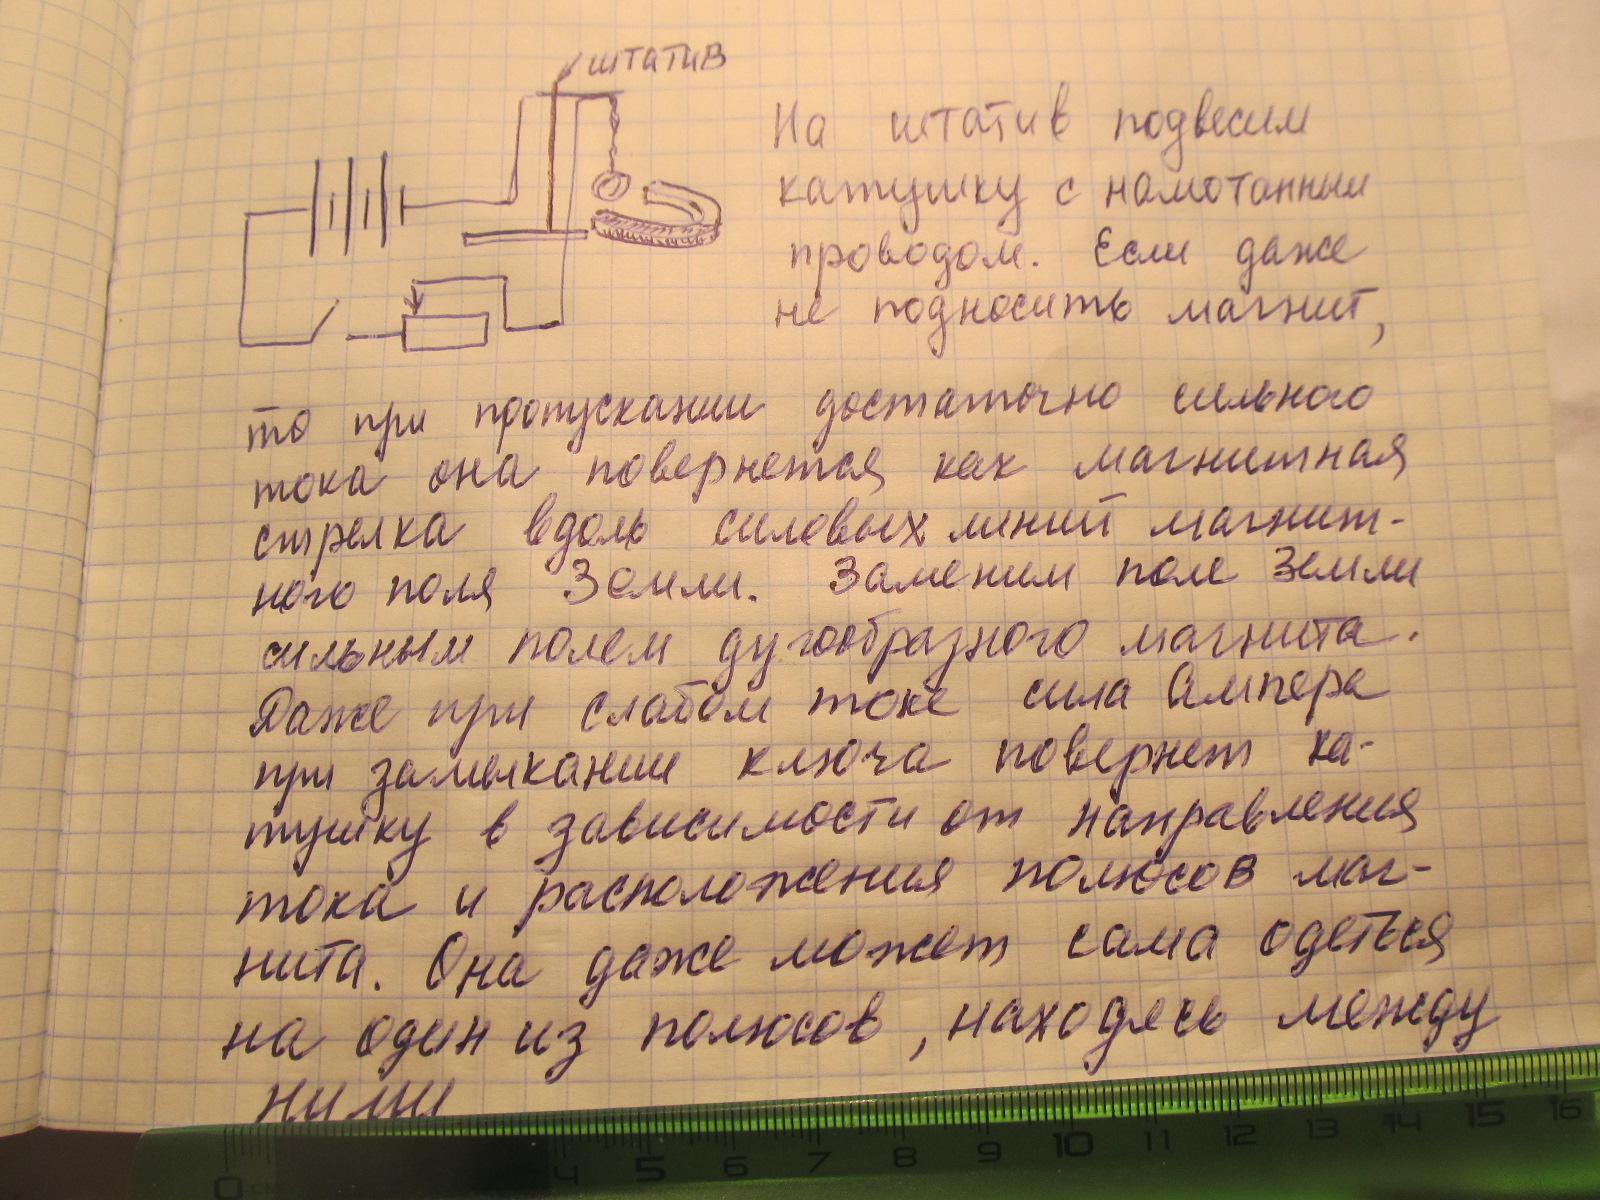 штатив
На штатив подвесим
катушку с намотанным
проводом. Если даже
не подносить магнит,
то при пропускании достаточно сильного
тока она повернется как магнитная
стрелка вдоль силовых линий магнит-
ного поля Земли. Заменим поле Земли
сильным полем дугообразного магнита.
Даже при слабом токе сила Ампера
при замыкании ключа повернет ка-
тушку в зависимости от направления
тока и расположения полюсов маг-
нита. Она даже может сама одеться
на один из полюсов, находясь между
ними
0 4 5 6 7 8 9 10 11 12 13 14 15 16